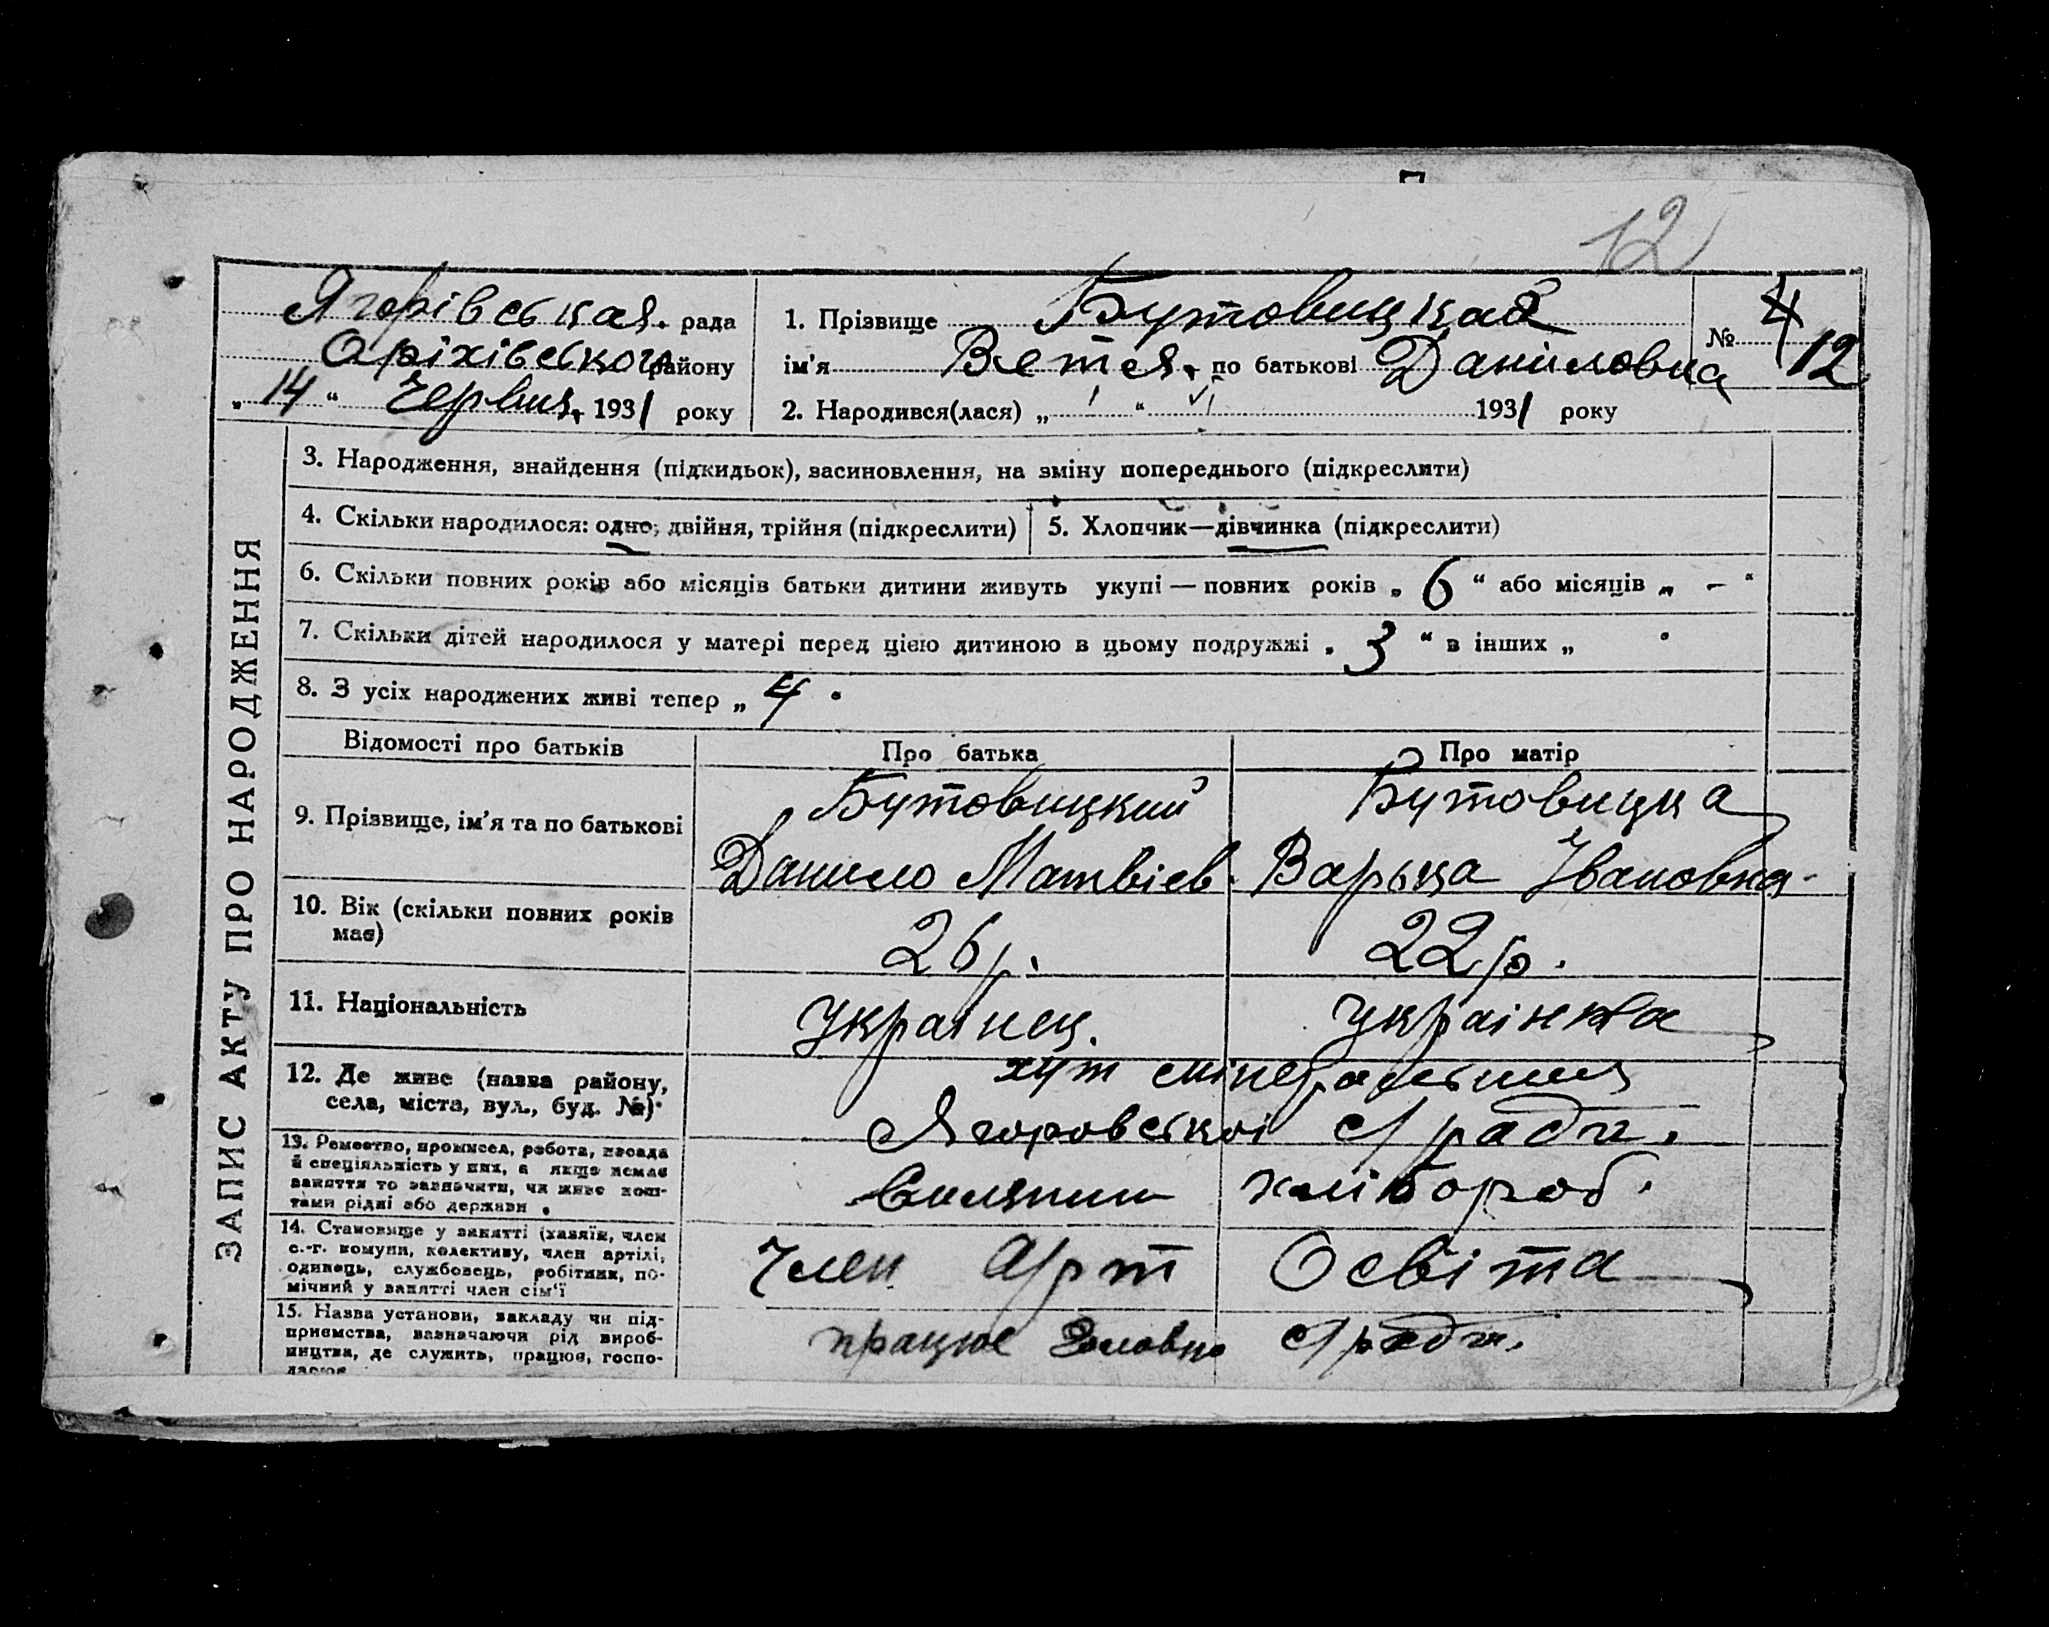 12
Ягорівськая. рада
Оріхівського району
„14“ Червня. 1931 року
1. Прізвище Бутовицкая
ім'я Ветя. по батькові Даниловна
№ 4 12
2. Народився(лася) „1“ VI 1931 року
ЗАПИС АКТУ ПРО НАРОДЖЕННЯ
3. Народження, знайдення (підкидьок), засиновлення, на зміну попереднього (підкреслити)
4. Скільки народилося: одно, двійня, трійня (підкреслити)
5. Хлопчик—дівчинка (підкреслити)
6. Скільки повних років або місяців батьки дитини живуть укупі — повних років „6“ або місяців „-“
7. Скільки дітей народилося у матері перед цією дитиною в цьому подружжі „3“ в інших „
8. З усіх народжених живі тепер „4
Відомості про батьків Про батька Про матір
9. Прізвище, ім'я та по батькові
Бутовицкий
Данило Матвієв.
Бутовицка
Варька Івановна.
10. Вік (скільки повних років
має)
26 р.
22 р.
11. Національність
Українец.
українка
12. Де живе (назва району,
села, міста, вул., буд. №)
хут
Ягоровської с/ради.
13. Ремество, промисел, робота, посада
й спеціяльність у них, а якщо немає
заняття то зазначити, чи живе кош-
тами рідні або держави
хлібороб.
14. Становище у занятті (хазяїн, член
с.-г. комуни, колективу, член артілі,
одинець, службовець, робітник, по-
мічний у занятті член сім'ї
Член Арт Освіта
15. Назва установи, закладу чи під-
приємства, зазначаючи рід вироб-
ництва, де служить, працює, госпо-
дарює
працює Головно с/ради.